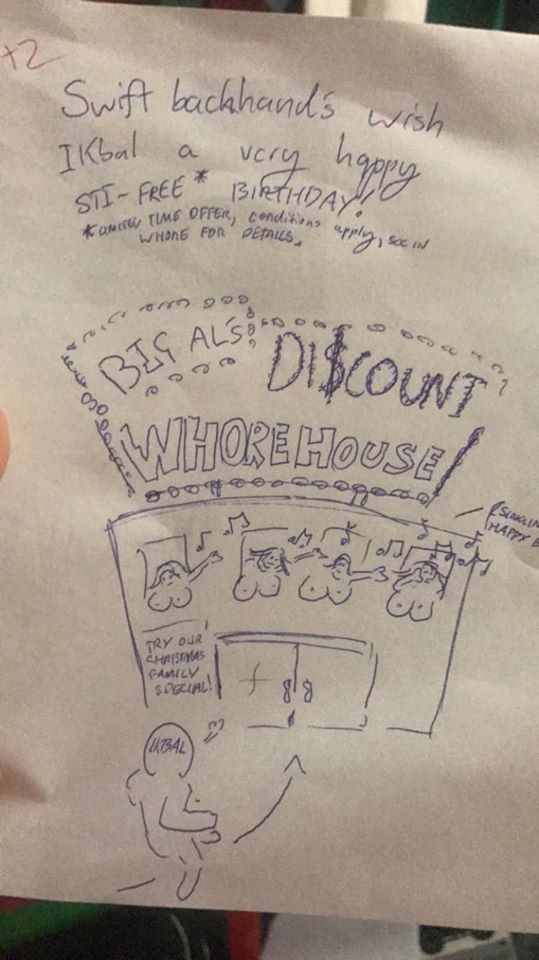 +2
Swift backhand's wish
IKbal a very happy
STI-FREE* BIRTHDAY!
*LIMITED TIME OFFER, conditions apply, see IN
WHORE FOR DETAILS.
BIG AL'S
DI$COUNT
WHOREHOUSE!
HAPPY B
TRY OUR
CHRISTMAS
FAMILY
SPECIAL!
IKBAL